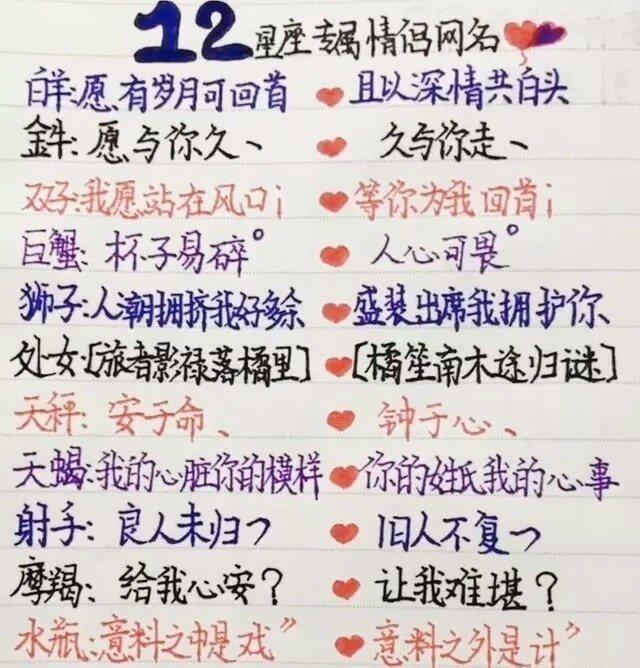 12星座专属情侣网名
白羊:愿有岁月可回首 且以深情共白头
金牛:愿与你久、 久与你走、
双子:我愿站在风口i 等你为我回首i
巨蟹:杯子易碎° 人心可畏°
狮子:人潮拥挤我好多余 盛装出席我拥护你、
处女:[旅者影禄落橘里] [橘笙南木途归谜]
天秤:安于命、 钟于心、
天蝎:我的心脏你的模样 你的姓氏我的心事
射手:良人未归つ 旧人不复つ
摩羯:给我心安? 让我难堪?
水瓶:意料之中是戏” 意料之外是计”